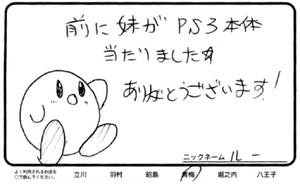 前に妹がPS3本体
当たりました☆
ありがとうございます!
ニックネーム ルー
よく利用されるお店を
○で囲んでください。
立川 羽村 昭島 青梅 堀之内 八王子